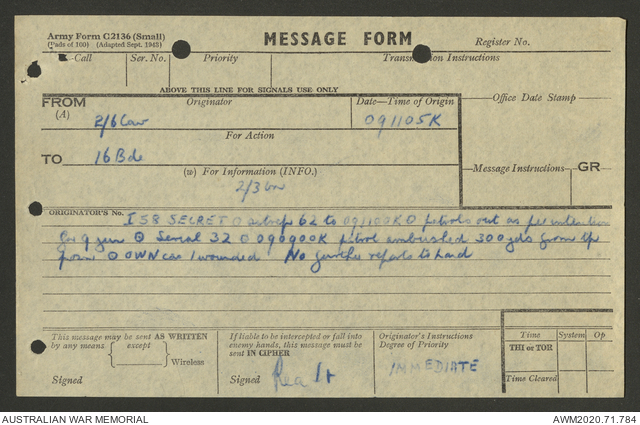 Army Form C2136 (Small)
(Pads of 100) (Adapted Sept. 1943)
MESSAGE FORM
Register No.
Call Ser. No. Priority Transmission Instructions
ABOVE THIS LINE FOR SIGNALS USE ONLY
FROM Originator Date—Time of Origin Office Date Stamp
(A) 2/6 Cav 091105K
For Action
TO 16 Bde
(W) For Information (INFO.) Message Instructions GR
2/3
ORIGINATOR'S No. I 58 SECRET ⊙ sitrep 62 to 091100K ⊙ patrols out as per intention
for 9 Jun ⊙ Serial 32 ⊙ 090900K patrol ambushed 300 yds from tp
posn ⊙ OWN cas 1 wounded No further reports to hand
This message may be sent AS WRITTEN
by any means except
Wireless
Signed
If liable to be intercepted or fall into
enemy hands, this message must be
sent IN CIPHER
Signed Rea Lt
Originator's Instructions
Degree of Priority
IMMEDIATE
Time System Op
THI or TOR
Time Cleared
AUSTRALIAN WAR MEMORIAL AWM2020.71.784